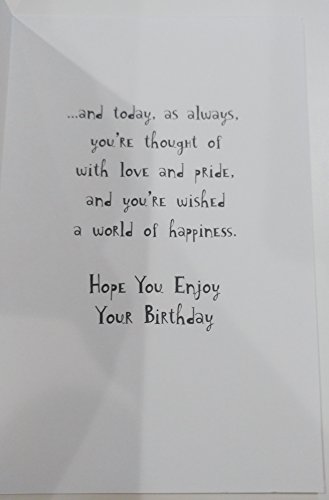 ...and today, as always,
you're thought of
with love and pride,
and you're wished
a world of happiness.
Hope You Enjoy
Your Birthday